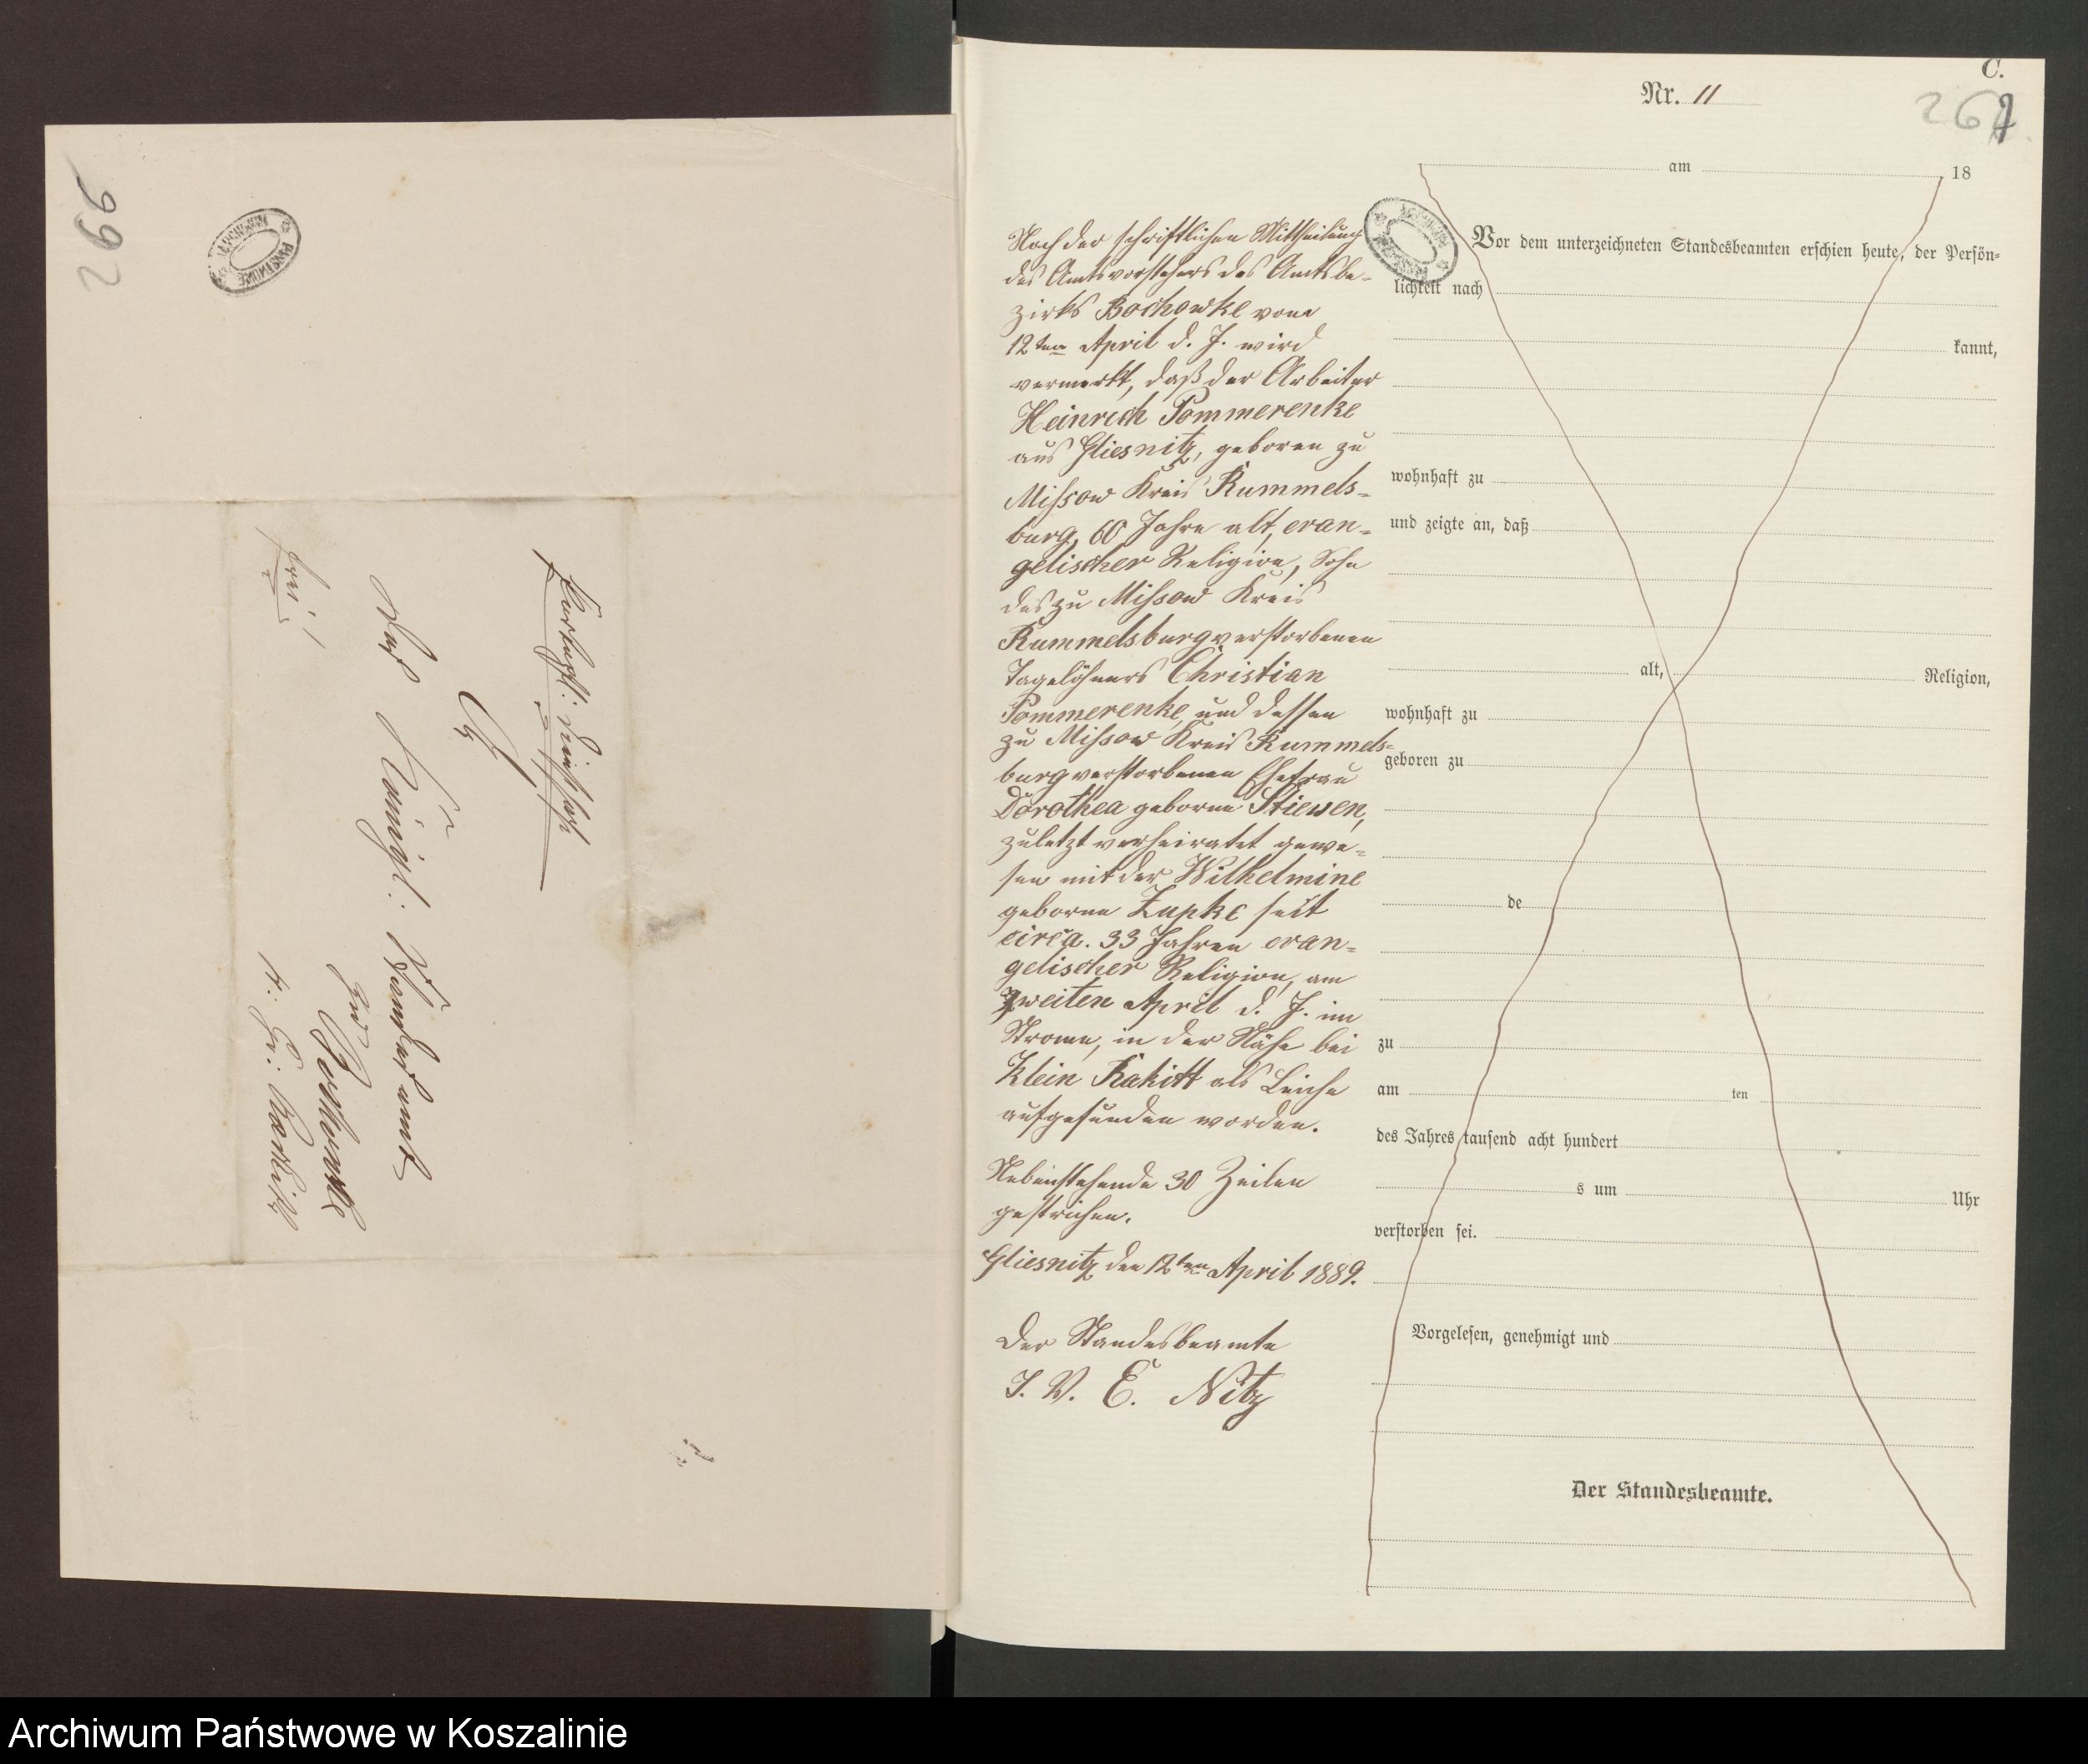 266
frei!
Portopfl: Dienstsache
An
Das Königl: Standesamt
zu
Bochowke
p: Gr: Nossin
Nr. 11
C.
267
am 18
Nach der schriftlichen Mittheilung
des Amtsvorstehers des Amtsbe-
zirks Bochowke vom
12ten April d. J. wird
vermerkt, daß der Arbeiter
Heinrich Pommerenke
aus Gliesnitz, geboren zu
Missow Kreis Rummels-
burg, 60 Jahre alt, evan-
gelischer Religion, Sohn
des zu Missow Kreis
Rummelsburg verstorbenen
Tagelöhners Christian
Pommerenke und dessen
zu Missow Kreis Rummels-
burg verstorbenen Ehefrau
Dorothea geborne Stiewen,
zuletzt verheiratet gewe-
sen mit der Wilhelmine
geborne Zupke seit
circa. 33 Jahren evan-
gelischer Religion, am
zweiten April d. J. im
Strome, in der Nähe bei
Klein Rakitt als Leiche
aufgefunden worden.
Nebenstehende 30 Zeilen
gestrichen.
Gliesnitz den 12ten April 1889.
Der Standesbeamte
I. V. E. Nitz
Vor dem unterzeichneten Standesbeamten erschien heute, der Persön-
lichkeit nach
kannt,
wohnhaft zu
und zeigte an, daß
alt, Religion,
wohnhaft zu
geboren zu
de
zu
am ten
des Jahres tausend acht hundert
s um Uhr
verstorben sei.
Vorgelesen, genehmigt und
Der Standesbeamte.
Archiwum Państwowe w Koszalinie